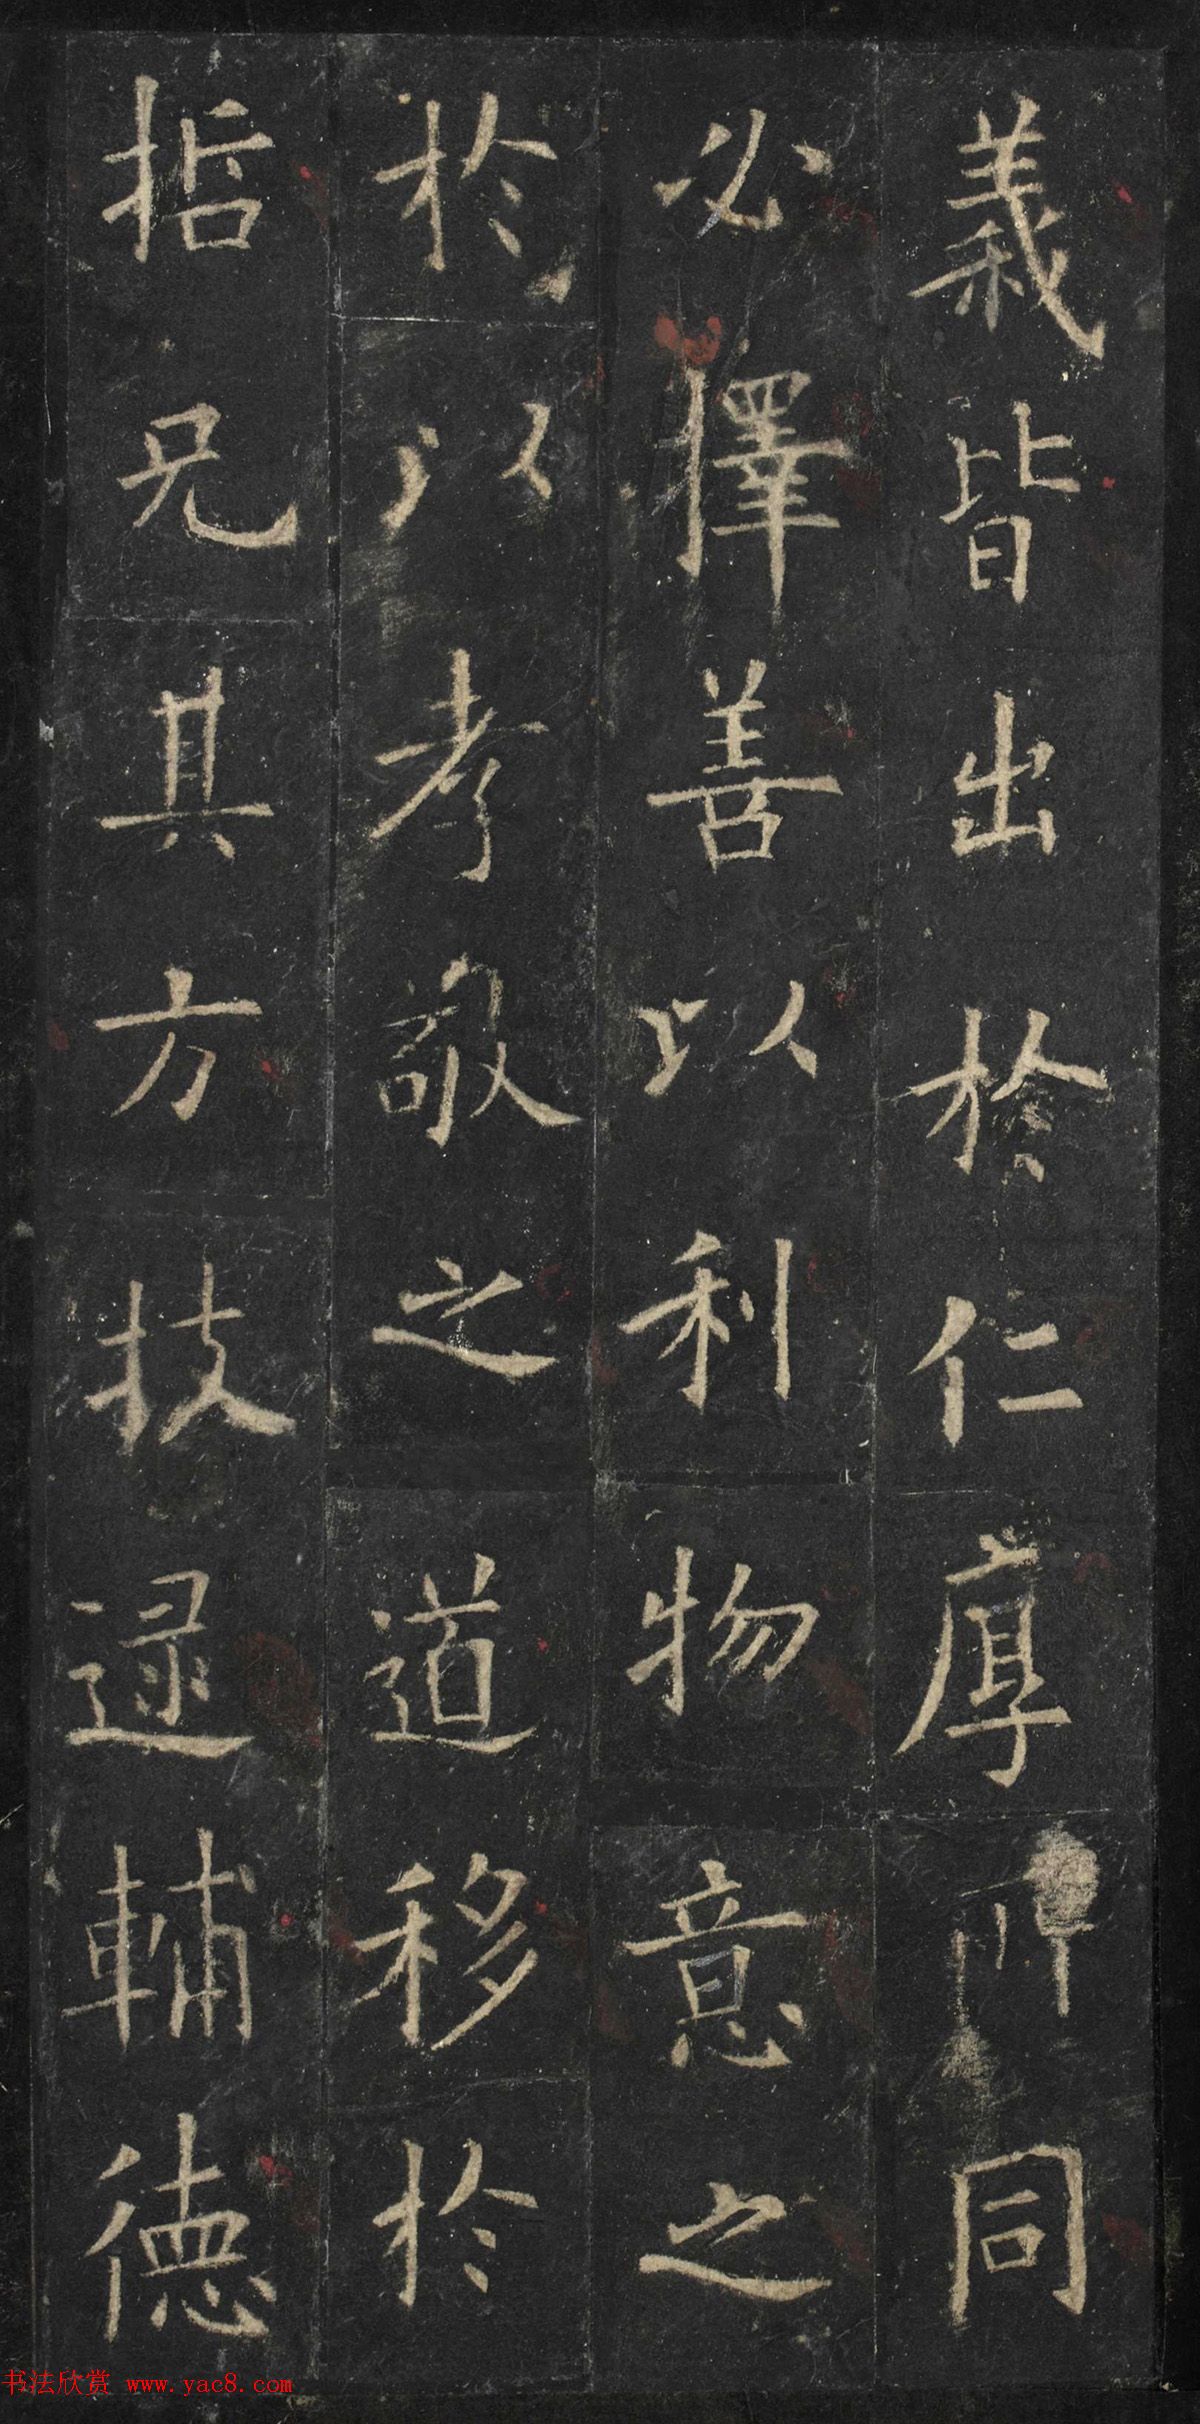 義皆出於仁厚同
必擇善以利物意之
於以孝敬之道移於
哲兄其方技逯輔德
书法欣赏 www.yac8.com